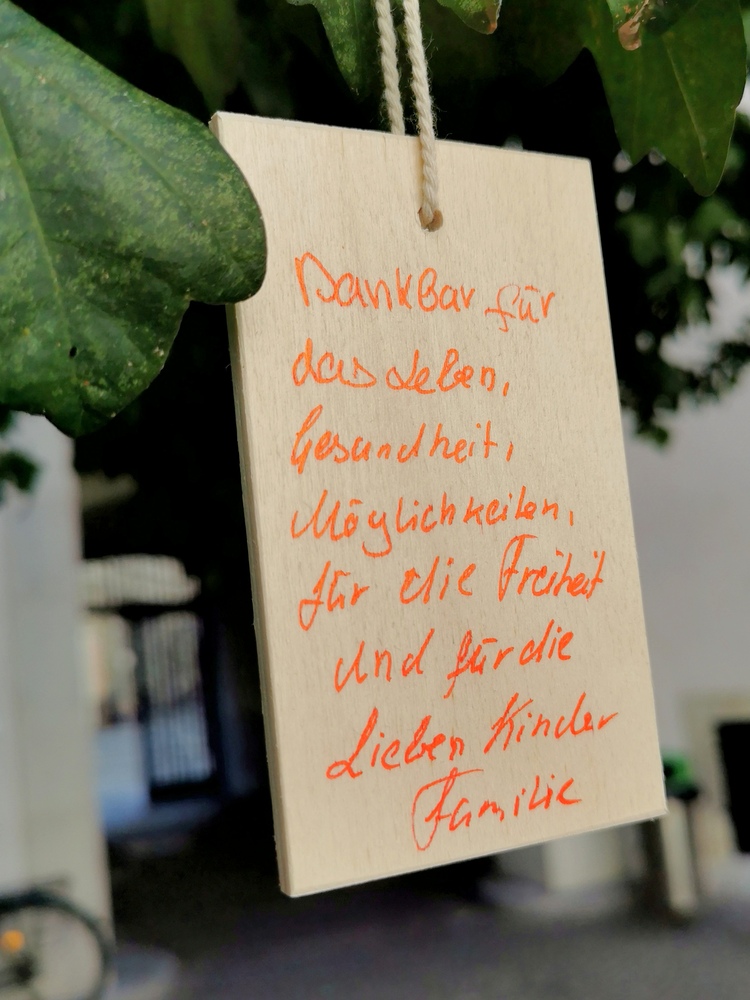 Dankbar für
das Leben,
Gesundheit,
Möglichkeiten,
für die Freiheit
und für die
Lieben Kinder
Familie